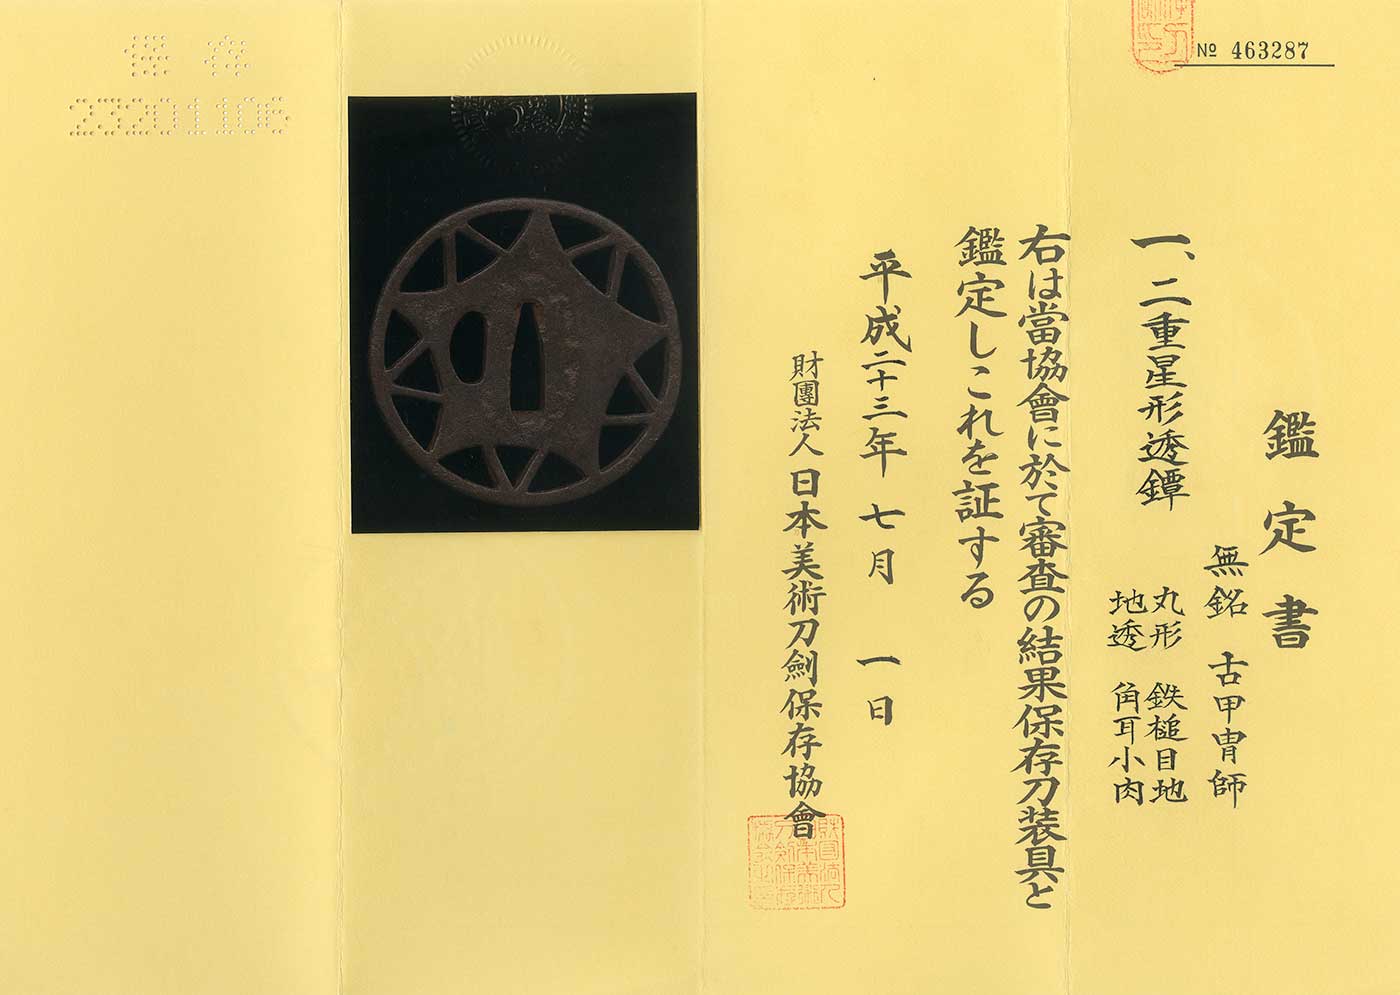 № 463287
鑑定書
一、二重星形透鐔
無銘 古甲冑師
丸形 鉄槌目地
地透 角耳小肉
右は當協會に於て審査の結果保存刀装具と
鑑定しこれを証する
平成二十三年七月一日
財團法人日本美術刀劍保存協會
保存
23201106